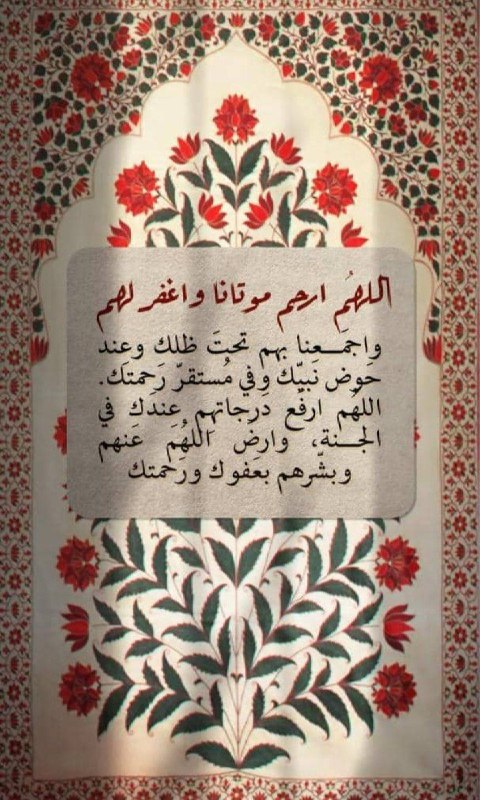 اللهُمِ ارحم موتانا واغفر لهم
واجمـــعنا بهم تحتَ ظلك وعند
حَوض نَبيّك وفي مُستقرّ رَحمتَك.
اللهُم ارفع دَرجاتهِم عِندَك في
الجـــنة، وارضُ اللهُمَ عَنهم
وبشّرهم بعَفوك ورحمتك